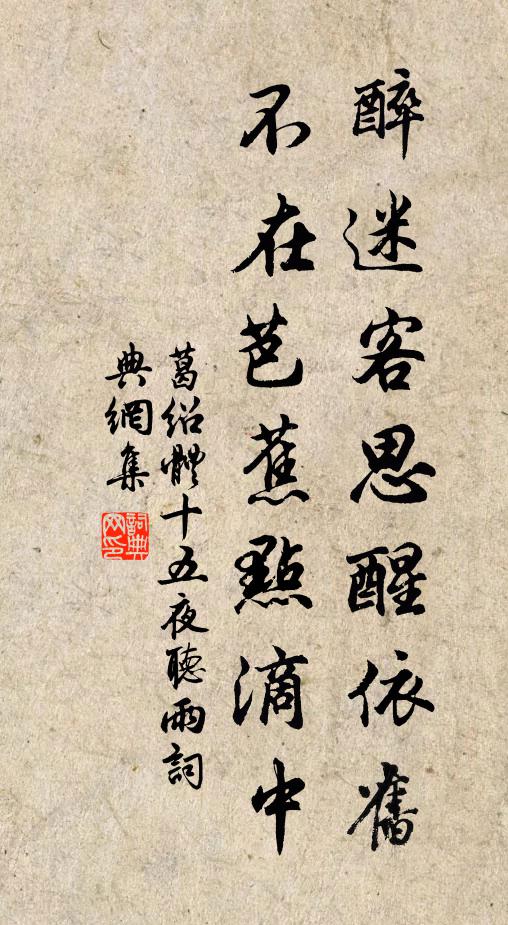 醉迷客思醒依舊
不在芭蕉點滴中
葛紹體十五夜聽雨詞
典網集
詞典
网印